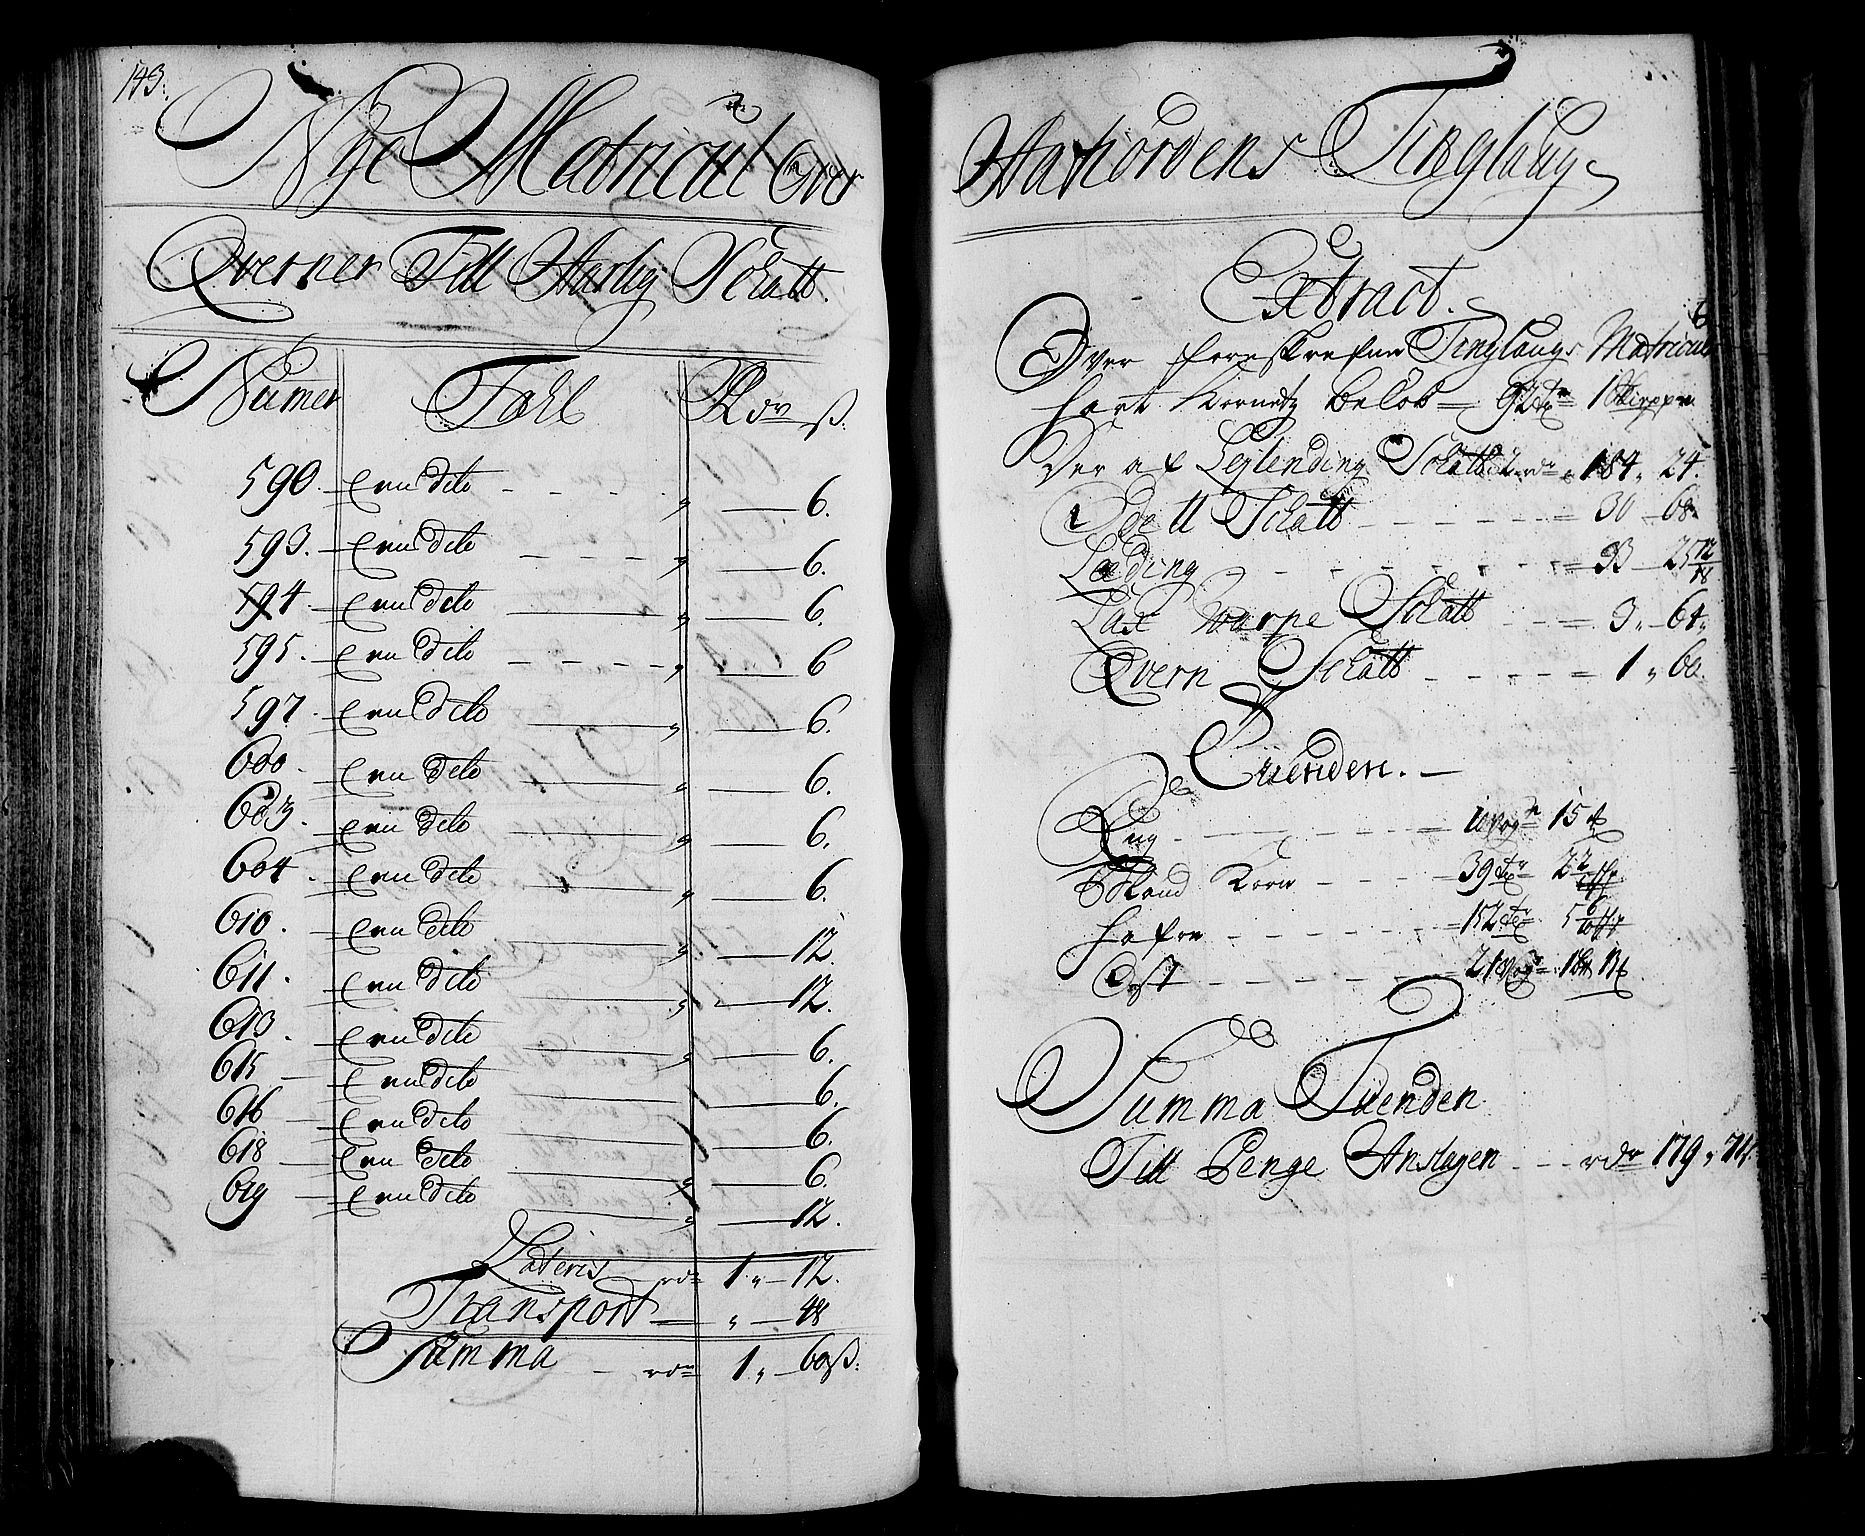 143.
Nye Matricul Over
Qverner Till Aarlig Schatt.
Numer Tahl Rdr ß.
590. - Een dito - - - - „ — 6.
593. - Een dito - - - - „ — 6.
594 - Een dito — „ — 6.
595. - Een dito - - - - „ — 6
597. - Een dito — „ — 6.
600 - Een dito — „ — 6.
603. - Een dito — „ — 6.
604. - Een dito — „ — 6.
610. - Een dito — „ — 12.
611. - Een dito — „ — 12.
613. - Een dito — „ — 6.
615 - Een dito — 6.
616 - Een dito — 6.
618 - Een dito — „ — 6.
619 - Een dito — „ — 12.
Lateris rdr 1 „ — 12.
Transport — „ — 48
Summa - rdr 1 „ — 60 ß.
Aafiordens Tinglaug
Extract.
Over foreskrefne Tinglaugs Matricul
hart Kornetz Beløb = 92 tr 1 Skippr
Der af Leylending Schatt 2 rdr „ 184 „ 24.
Odell Schatt - - - - - = 30 - 68
Leding - - - - - - = 33 - 25 12/18
Lax Warpe Schatt - - = 3 „ 64 „
Qvern Schatt - - - - = 1 „ 60.
Tiienden. —
Rug - - - - - = 15
Bland Korn - - - - 39 tr 2
Hafre - - - - - 152 tr 5
Ost - - - - - 21
Summa Tiienden
Till Penge Anslagen - - - rdr 179 „ 74